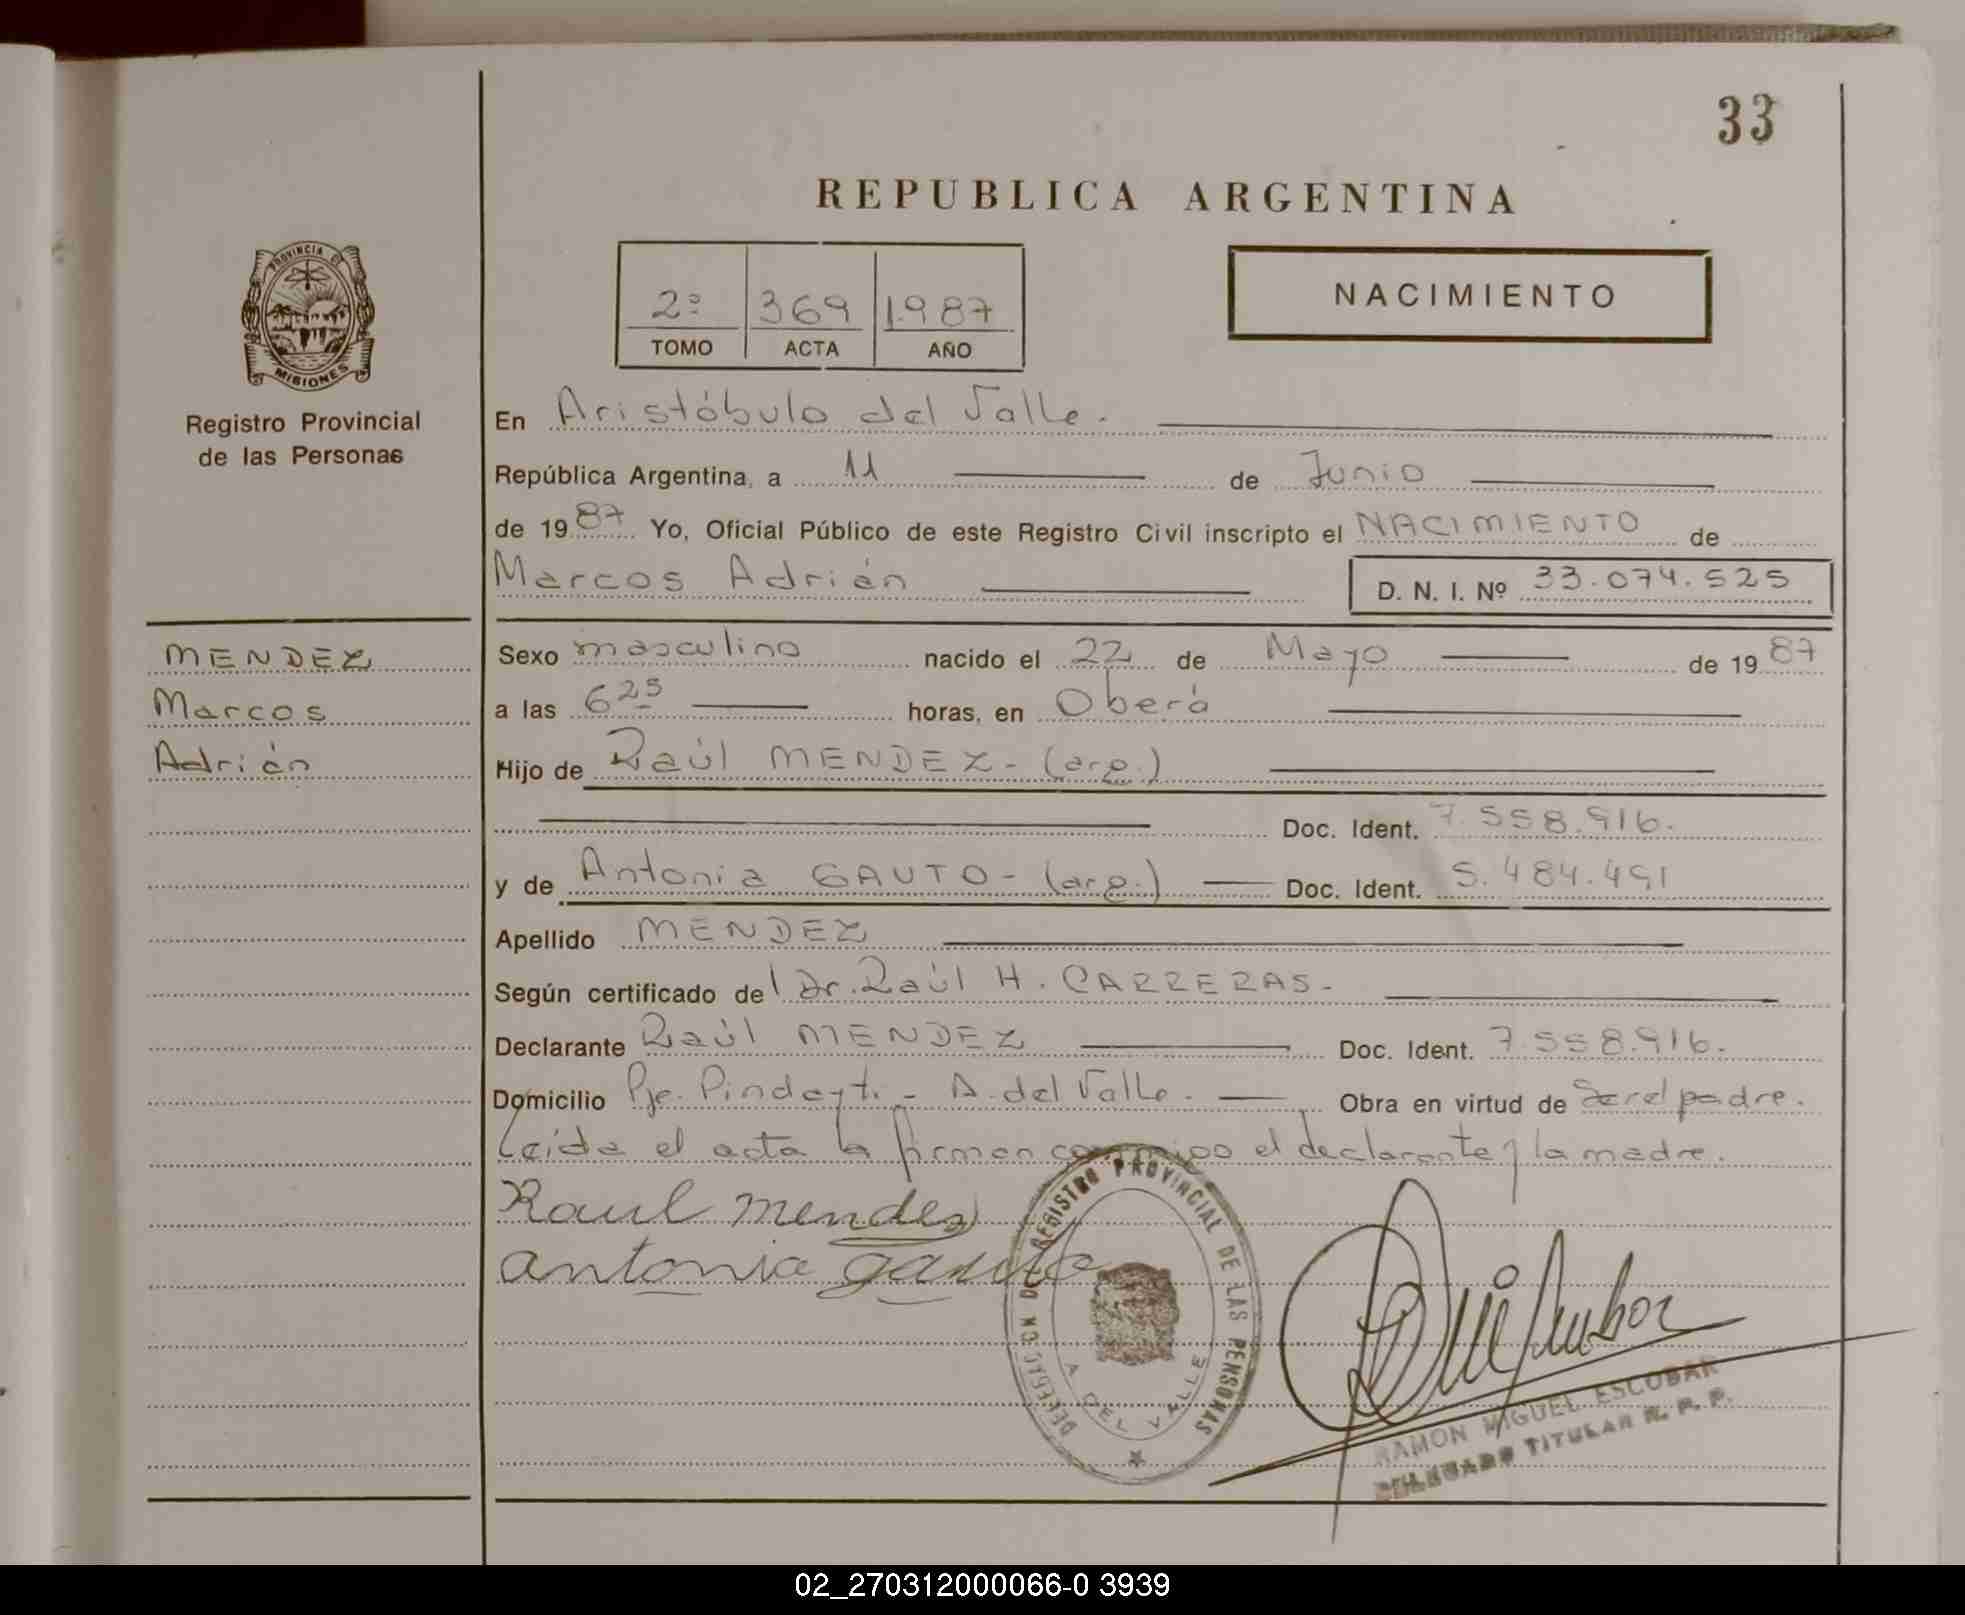 33
REPUBLICA ARGENTINA
PROVINCIA DE
MISIONES
Registro Provincial
de las Personas
2º 369 1.987
TOMO ACTA AÑO
NACIMIENTO
En Aristóbulo del Valle.
República Argentina, a 11 de Junio
de 1987 Yo, Oficial Público de este Registro Civil inscripto el NACIMIENTO de
Marcos Adrián
D. N. I. Nº 33.074.525
MENDEZ
Marcos
Adrián
Sexo masculino nacido el 22 de Mayo de 1987
a las 6 25 horas, en Oberá
Hijo de Raúl MENDEZ - (arg.)
Doc. Ident. 7.558.916.
y de Antonia GAUTO - (arg.) Doc. Ident. 5.484.491
Apellido MENDEZ
Según certificado del Dr. Raúl H. CARRERAS.-
Declarante Raúl MENDEZ Doc. Ident. 7.558.916.
Domicilio Pje. Pindayti - A. del Valle. Obra en virtud de Ser el padre.
Leida el acta la firman conmigo el declarante y la madre.
Raul mendez
antonia gauto
REGISTRO PROVINCIAL DE LAS PERSONAS
A DEL VALLE
RAMON MIGUEL ESCOBAR
DELEGADO TITULAR R. P. P.
02_270312000066-0 3939